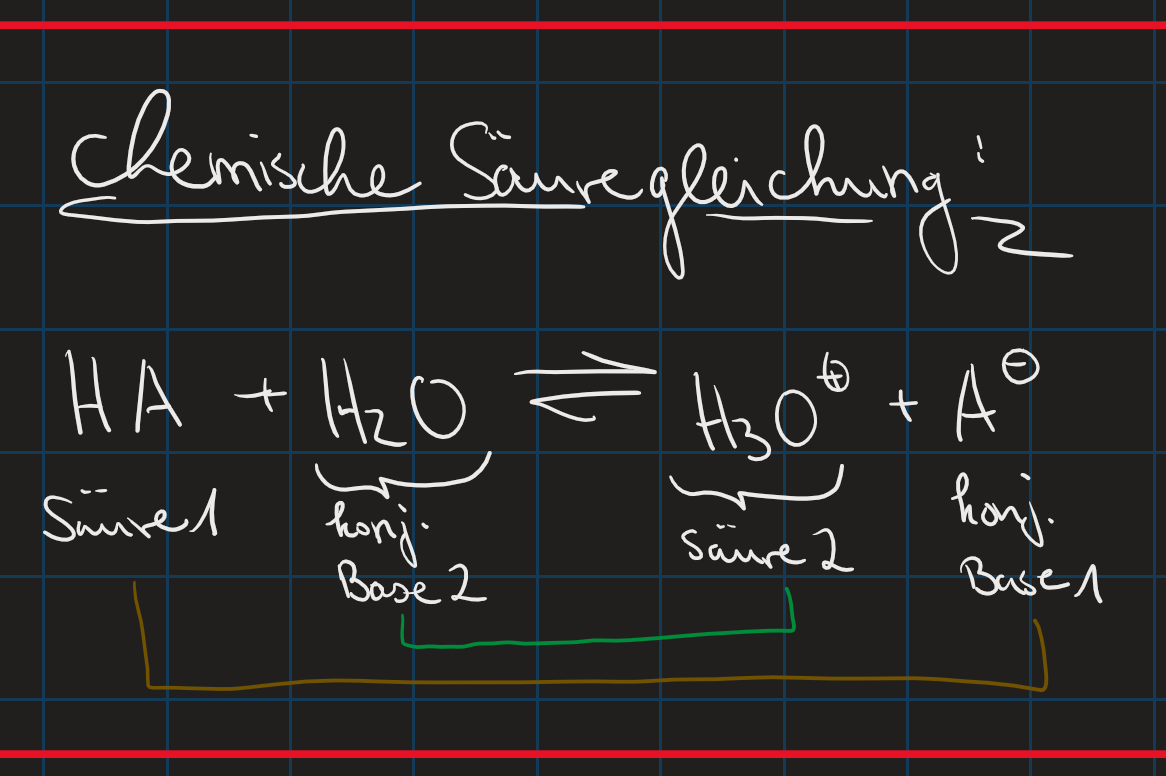 Chemische Säuregleichung:
HA + H₂O ⇌ H₃O⊕ + A⊖
Säure1 konj. Säure2 konj.
Base2 Base1